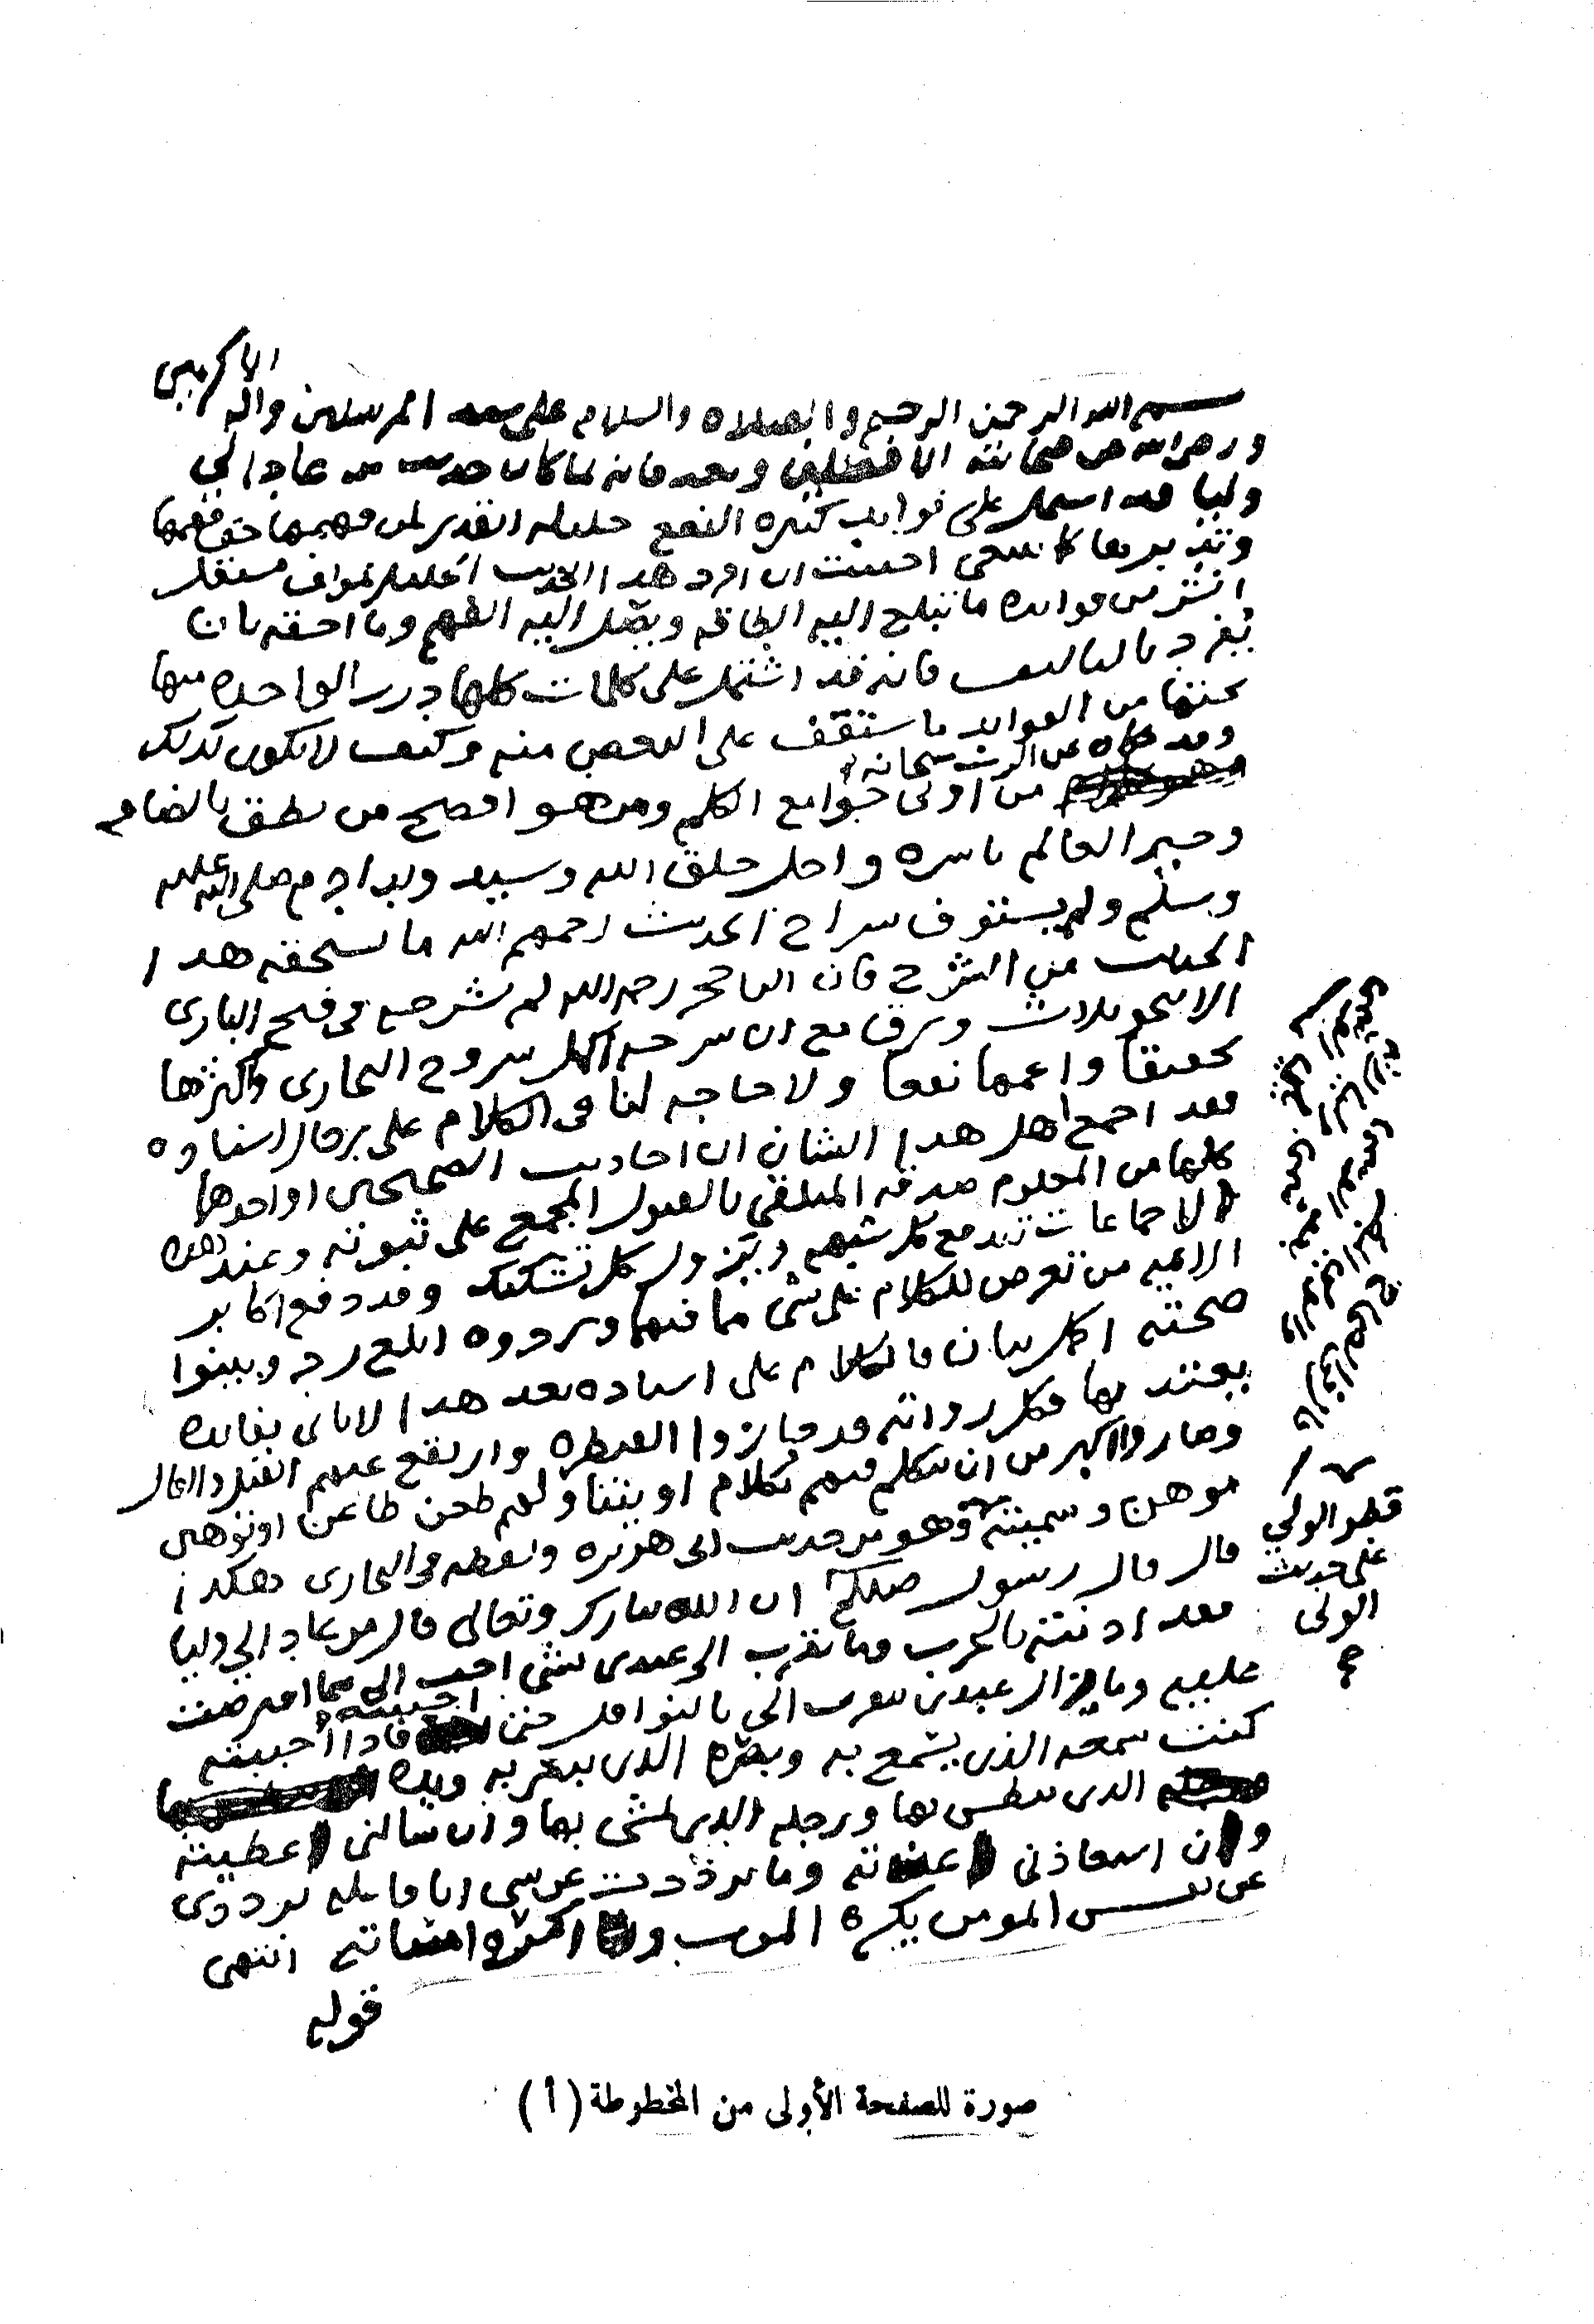 الاكرمين
بسم الله الرحمن الرحيم والصلاه والسلام على سيد المرسلين واله
ورضى الله عن صحابته الافضلين وبعد فانه لما كان حديث من عادا لي
وليا قد اشتمل على فوايد كثيره النفع جليله القدر لمن فهمها حق فهمها
وتدبرها كما ينبغى احببت ان افرد هدا الحديث الجليل بمولف مستقل
انشر من فوائده ما تبلغ اليه الطاقه ويصل اليه الفهم وما احقه بان
يفرد بالتاليف فانه قد اشتمل على كلمات كلها درر الواحده منها
تحتها من الفوايد ما ستقف على البعض منه وكيف لا يكون كدلك
وقد حكاه عن الرب سبحانه
من اوتى جوامع الكلم ومن هو افصح من نطق بالضاد
وخير العالم باسره واجل خلق الله وسيد ولد ادم صلى الله عليه
وسلم ولم يستوف شراح الحديث رحمهم الله ما يستحقه هدا
الحديث من الشرح فان ابن حجر رحمه الله لم يشرحه فى فتح البارى
الا بنحو ثلاث ورق مع ان شرحه اكمل شروح البخارى واكثرها
تحقيقا واعمها نفعا ولا حاجه لنا فى الكلام على رجال اسناده
فقد اجمع اهل هدا الشان ان احاديث الصحيحين او احدهما
كلها من المعلوم صدقه المتلقى بالقبول المجمع على ثبوته وعند هذه
الاجماعات تندفع كل شبهه ويزول كل تشكيك وقد دفع اكابر
الايمه من تعرض للكلام على شى مما فيهما وردوه ابلغ رد وبينوا
صحته اكمل بيان فالكلام على اسناده بعد هدا لا ياتى بفايده
يعتد بها فكل رواته قد جازوا القنطره وارتفع عنهم القيل والقال
وصاروا اكبر من ان يتكلم فيهم بكلام او يتناولهم طعن طاعن او توهين
موهن وسميته وهو من حديث ابى هريره ولفظه فى البخارى هكدا
قال قال رسول صللم ان الله تبارك وتعالى قال من عادا لي وليا
فقد ادنته بالحرب وما تقرب الى عبدى بشى احب الى مما افترضت
عليه وما يزال عبدى يتقرب الي بالنوافل حتى احببته فادا احببته
كنت سمعه الذى يسمع به وبصره الدى يبصر به ويده
الدى يبطش بها ورجله الدى يمشى بها وان سالنى اعطيته
وان استعاذنى اعذته وما ترددت عن شى انا فاعله ترددى
عن نفس المومن يكره الموت وانا اكره اساته انتهى
قوله
قطر الولي
على حديث
الولى
صورة للصفحة الأولى من المخطوطة (أ)